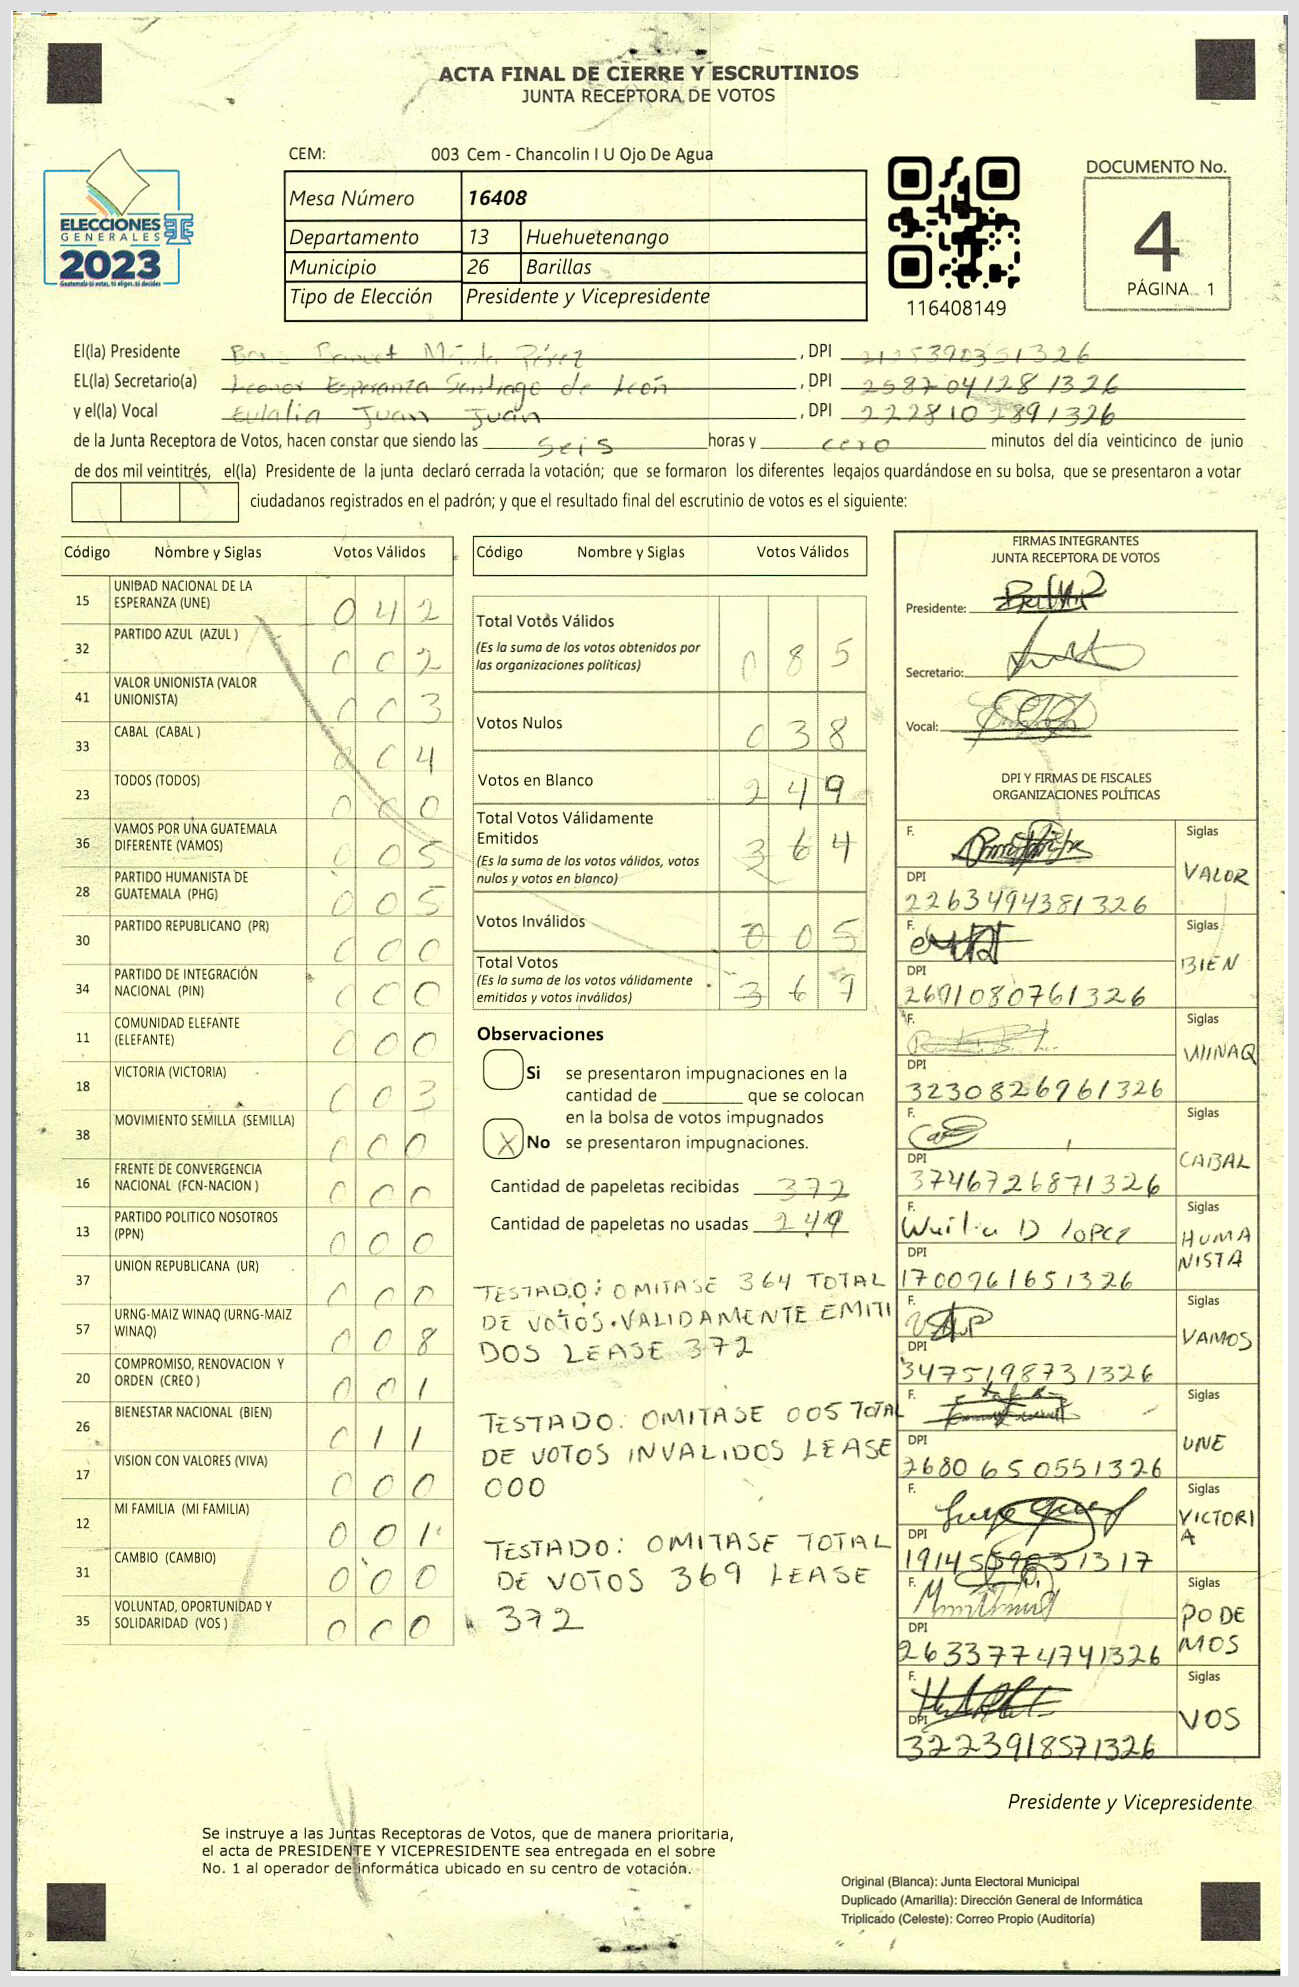 ACTA FINAL DE CIERRE Y ESCRUTINIOS
JUNTA RECEPTORA DE VOTOS
CEM: 003 Cem - Chancolin I U Ojo De Agua
Mesa Número 16408
Departamento 13 Huehuetenango
Municipio 26 Barillas
Tipo de Elección Presidente y Vicepresidente
ELECCIONES
GENERALES
2023
Guatemala tú votas, tú eliges, tú decides
116408149
DOCUMENTO No.
4
PÁGINA 1
El(la) Presidente Pérez , DPI
EL(la) Secretario(a) Leonor Esperanza Santiago de León , DPI 2587041281326
y el(la) Vocal Eulalia Juan Juan , DPI
de la Junta Receptora de Votos, hacen constar que siendo las seis horas y cero minutos del día veinticinco de junio
de dos mil veintitrés, el(la) Presidente de la junta declaró cerrada la votación; que se formaron los diferentes legajos guardándose en su bolsa, que se presentaron a votar
ciudadanos registrados en el padrón; y que el resultado final del escrutinio de votos es el siguiente:
Código Nombre y Siglas Votos Válidos
15 UNIDAD NACIONAL DE LA ESPERANZA (UNE) 0 4 2
32 PARTIDO AZUL (AZUL ) 0 0 2
41 VALOR UNIONISTA (VALOR UNIONISTA) 0 0 3
33 CABAL (CABAL ) 0 0 4
23 TODOS (TODOS) 0 0 0
36 VAMOS POR UNA GUATEMALA DIFERENTE (VAMOS) 0 0 5
28 PARTIDO HUMANISTA DE GUATEMALA (PHG) 0 0 5
30 PARTIDO REPUBLICANO (PR) 0 0 0
34 PARTIDO DE INTEGRACIÓN NACIONAL (PIN) 0 0 0
11 COMUNIDAD ELEFANTE (ELEFANTE) 0 0 0
18 VICTORIA (VICTORIA) 0 0 3
38 MOVIMIENTO SEMILLA (SEMILLA) 0 0 0
16 FRENTE DE CONVERGENCIA NACIONAL (FCN-NACION ) 0 0 0
13 PARTIDO POLITICO NOSOTROS (PPN) 0 0 0
37 UNION REPUBLICANA (UR) 0 0 0
57 URNG-MAIZ WINAQ (URNG-MAIZ WINAQ) 0 0 8
20 COMPROMISO, RENOVACION Y ORDEN (CREO ) 0 0 1
26 BIENESTAR NACIONAL (BIEN) 0 1 1
17 VISION CON VALORES (VIVA) 0 0 0
12 MI FAMILIA (MI FAMILIA) 0 0 1
31 CAMBIO (CAMBIO) 0 0 0
35 VOLUNTAD, OPORTUNIDAD Y SOLIDARIDAD (VOS ) 0 0 0
Código Nombre y Siglas Votos Válidos
Total Votos Válidos 0 8 5
(Es la suma de los votos obtenidos por
las organizaciones políticas)
Votos Nulos 0 3 8
Votos en Blanco 2 4 9
Total Votos Válidamente
Emitidos 3 6 4
(Es la suma de los votos válidos, votos
nulos y votos en blanco)
Votos Inválidos 0 0 5
Total Votos 3 6 9
(Es la suma de los votos válidamente
emitidos y votos inválidos)
Observaciones
Si se presentaron impugnaciones en la
cantidad de ________ que se colocan
en la bolsa de votos impugnados
X No se presentaron impugnaciones.
Cantidad de papeletas recibidas 372
Cantidad de papeletas no usadas 249
TESTADO: OMITASE 364 TOTAL
DE VOTOS VALIDAMENTE EMITI
DOS LEASE 372
TESTADO: OMITASE 005 TOTAL
DE VOTOS INVALIDOS LEASE
000
TESTADO: OMITASE TOTAL
DE VOTOS 369 LEASE
372
FIRMAS INTEGRANTES
JUNTA RECEPTORA DE VOTOS
Presidente:
Secretario:
Vocal:
DPI Y FIRMAS DE FISCALES
ORGANIZACIONES POLÍTICAS
F. Siglas
VALOR
DPI
2263494381326
F. Siglas
BIEN
DPI
2691080761326
F. Siglas
WINAQ
DPI
3230826961326
F. Siglas
CABAL
DPI
3746726871326
F. Siglas
HUMA
NISTA
DPI
1700961651326
F. Siglas
VAMOS
DPI
3475198731326
F. Siglas
UNE
DPI
2680650551326
F. Siglas
VICTORI
A
DPI
F. Siglas
PODE
MOS
DPI
2633774741326
F. Siglas
VOS
DPI
3223918571326
Presidente y Vicepresidente
Se instruye a las Juntas Receptoras de Votos, que de manera prioritaria,
el acta de PRESIDENTE Y VICEPRESIDENTE sea entregada en el sobre
No. 1 al operador de informática ubicado en su centro de votación.
Original (Blanca): Junta Electoral Municipal
Duplicado (Amarilla): Dirección General de Informática
Triplicado (Celeste): Correo Propio (Auditoría)